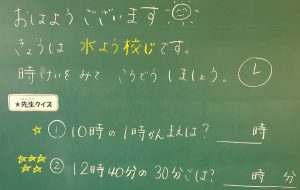 おはようございます
きょうは 水よう校じです。
時けいをみて こうどうしましょう。
★先生クイズ
☆ ① 10時の1時かんまえは? ＿＿時
☆☆☆☆☆ ② 12時40分の30分ごは? ＿＿時 分